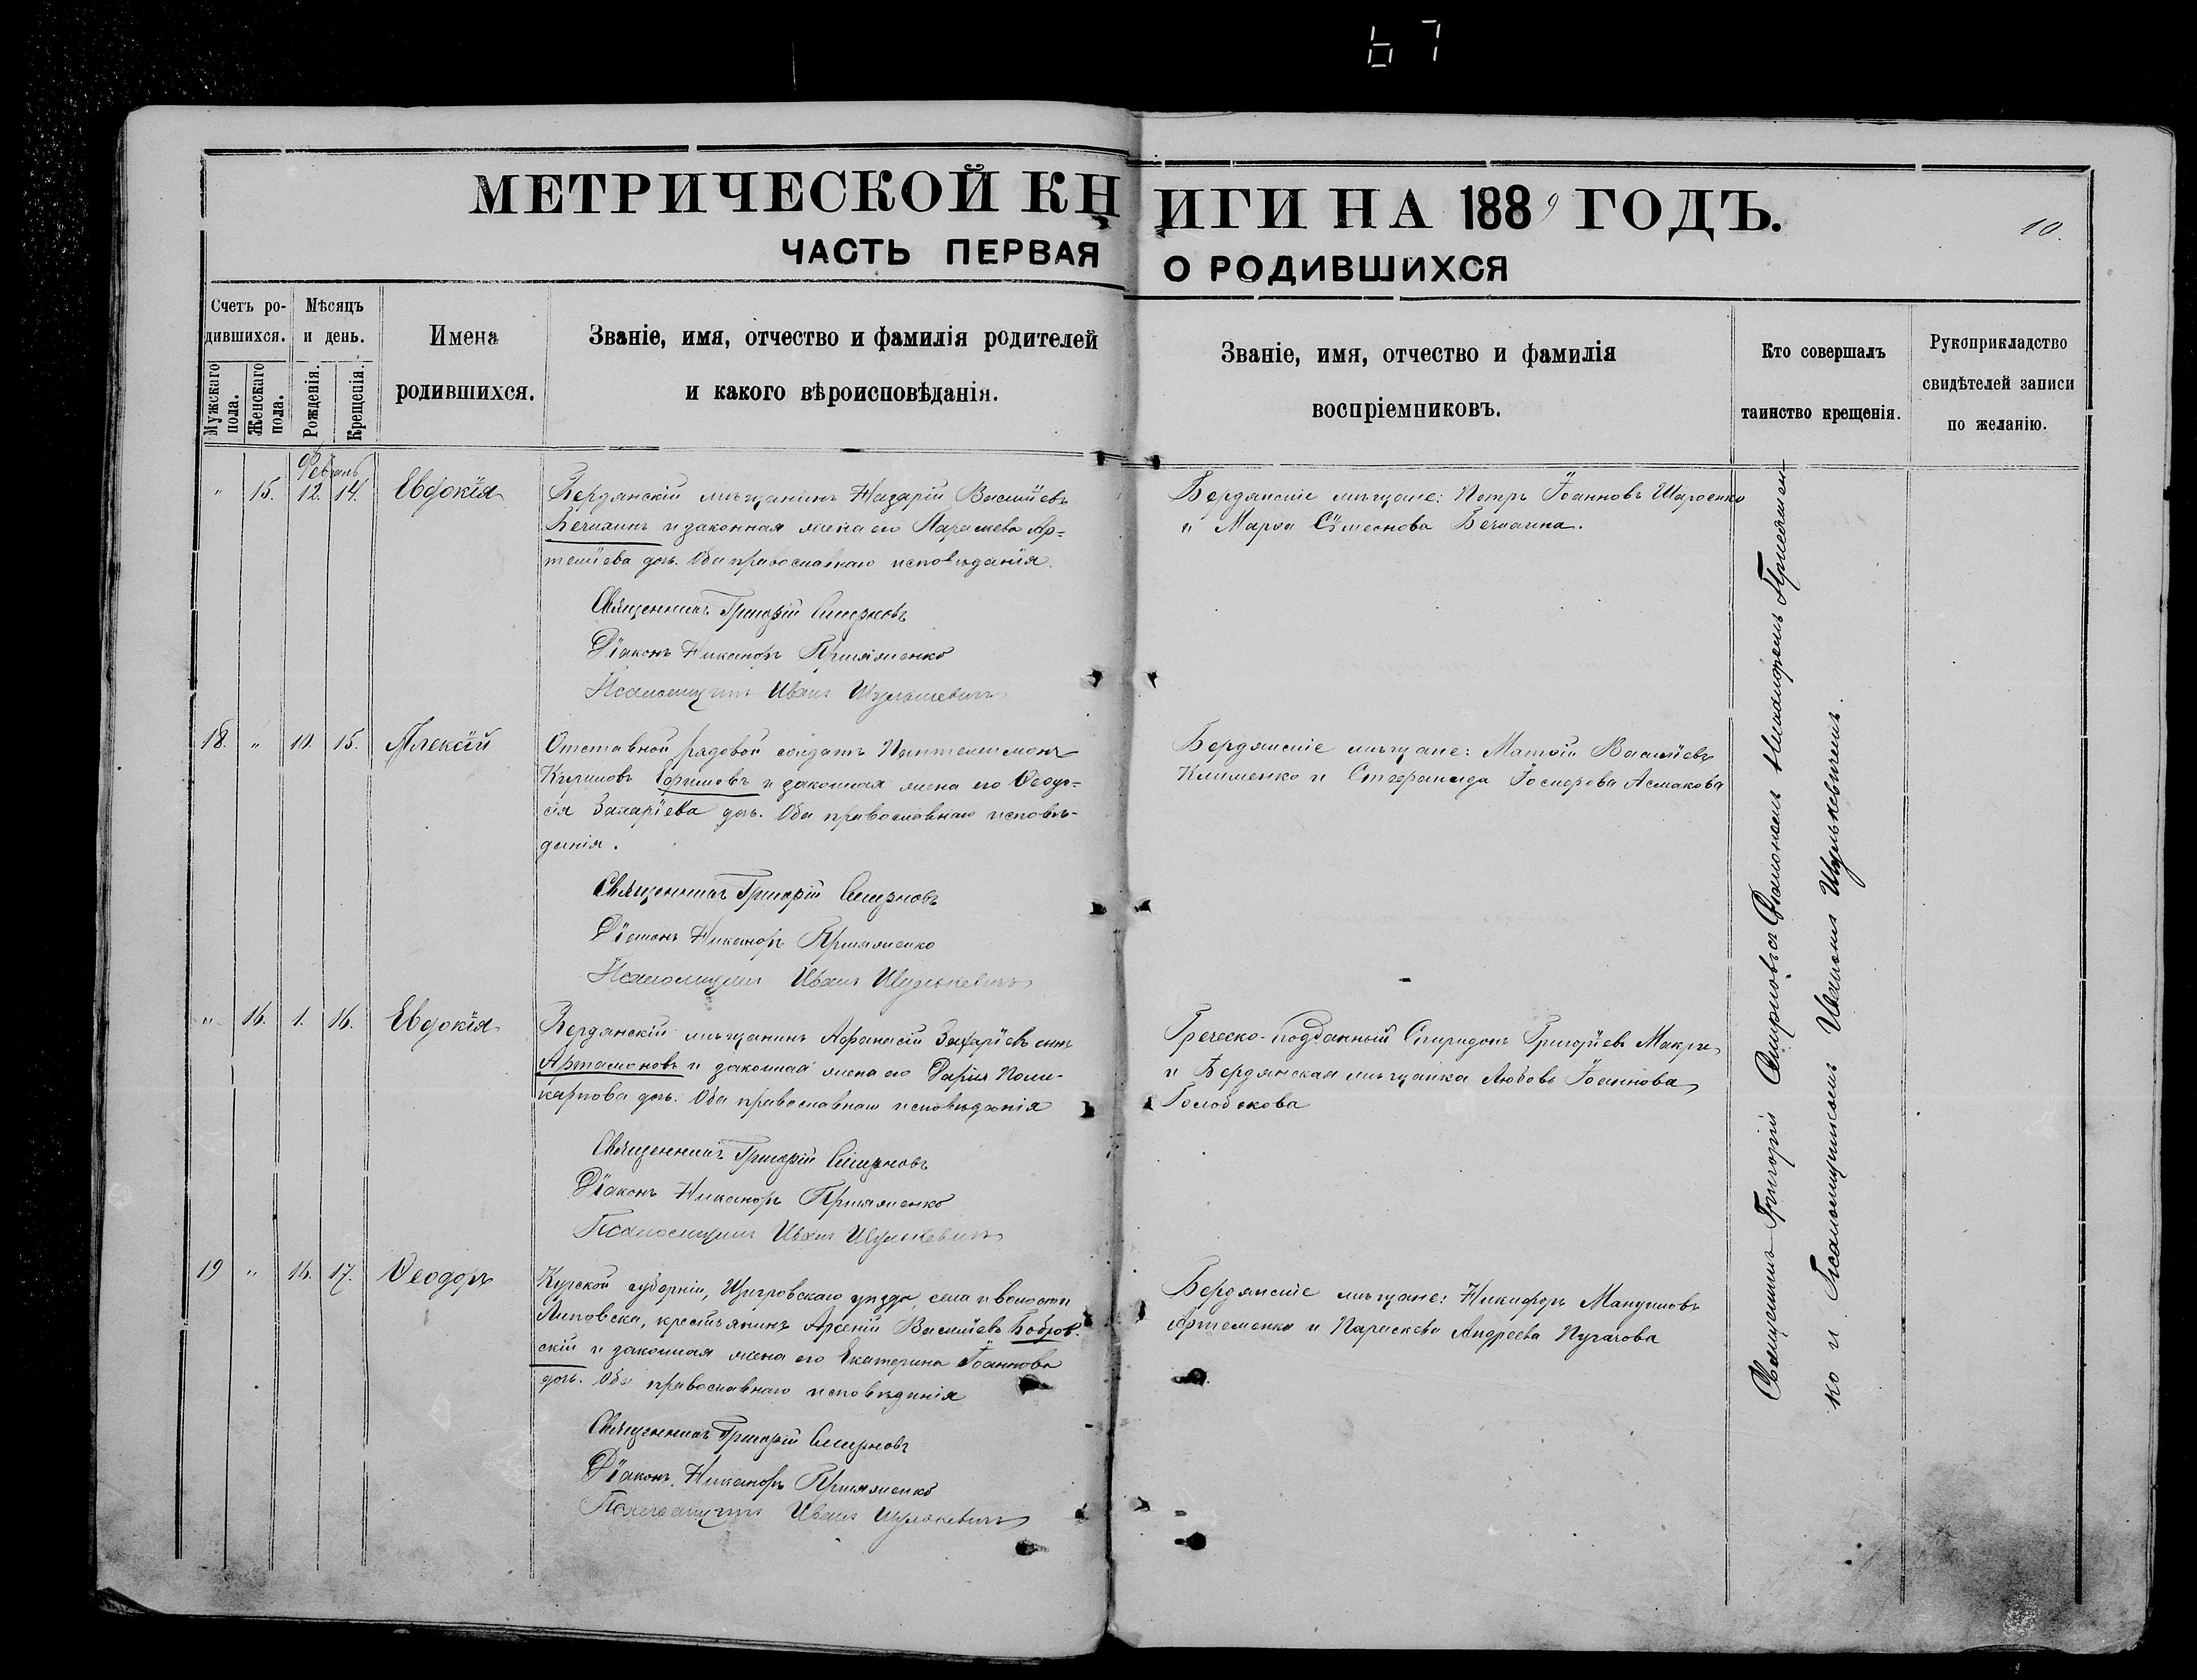 67
МЕТРИЧЕСКОЙ КНИГИ НА 1889 ГОДЪ.
10.
ЧАСТЬ ПЕРВАЯ О РОДИВШИХСЯ
Счетъ ро-
дившихся.
Мужскаго пола.
Женскаго пола.
Мѣсяцъ
и день.
Рожденія.
Крещенія.
Имена
родившихся.
Званіе, имя, отчество и фамилія родителей
и какого вѣроисповѣданія.
Званіе, имя, отчество и фамилія
воспріемниковъ.
Кто совершалъ
таинство крещенія.
Рукоприкладство
свидѣтелей записи
по желанію.
Февраль
" 15. 12. 14. Евдокія
Бердянскій мѣщанинъ Назарій Василіевъ
и законная жена его Параскева Ар-
темiева дочь. Оба православнаго исповѣданія.
Священникъ Григорій Смирновъ
Діаконъ Никаноръ Присяженко
Псаломщикъ Иванъ Шулькевичъ
Бердянскіе мѣщане: Петръ Іоанновъ
и Марѳа Сѵмеонова
18. " 10. 15. Алексій
Отставной рядовой солдатъ Пантелеимонъ
Кириловъ Ефимовъ и законная жена его Ѳеодо-
сія Захаріева дочь. Оба православнаго исповѣ-
данія.
Священникъ Григорій Смирновъ
Діаконъ Никаноръ Присяженко
Псаломщикъ Иванъ Шулькевичъ
Бердянскіе мѣщане: Матѳій Василіевъ
Клименко и Стефанида Іосифова Асмакова
" 16. 1. 16. Евдокія
Бердянскій мѣщанинъ Афанасій Захаріевъ сынъ
Артамоновъ и законная жена его Дарія Поли-
карпова дочь. Оба православнаго исповѣданія
Священникъ Григорій Смирновъ
Діаконъ Никаноръ Присяженко
Псаломщикъ Иванъ Шулькевичъ
Греческо-подданный Спиридонъ Григоріевъ Макри
и Бердянская мѣщанка Любовь Іоаннова
Голобокова
19 " 16. 17. Ѳеодоръ
Курской губерніи, Щигровскаго уѣзда, села и волости
Липовска, крестьянинъ Арсеній Василіевъ Бобров-
скій и законная жена его Екатерина Іоаннова
дочь. Оба православнаго исповѣданія
Священникъ Григорій Смирновъ
Діаконъ Никаноръ Присяженко
Псаломщикъ Иванъ Шулькевичъ
Бердянскіе мѣщане: Никифоръ Мануиловъ
Артеменко и Параскева Андреева Пугачова
Священникъ Григорій Смирновъ съ Діакономъ Никаноромъ Присяжен-
ко и Псаломщикомъ Иваномъ Шулькевичемъ.